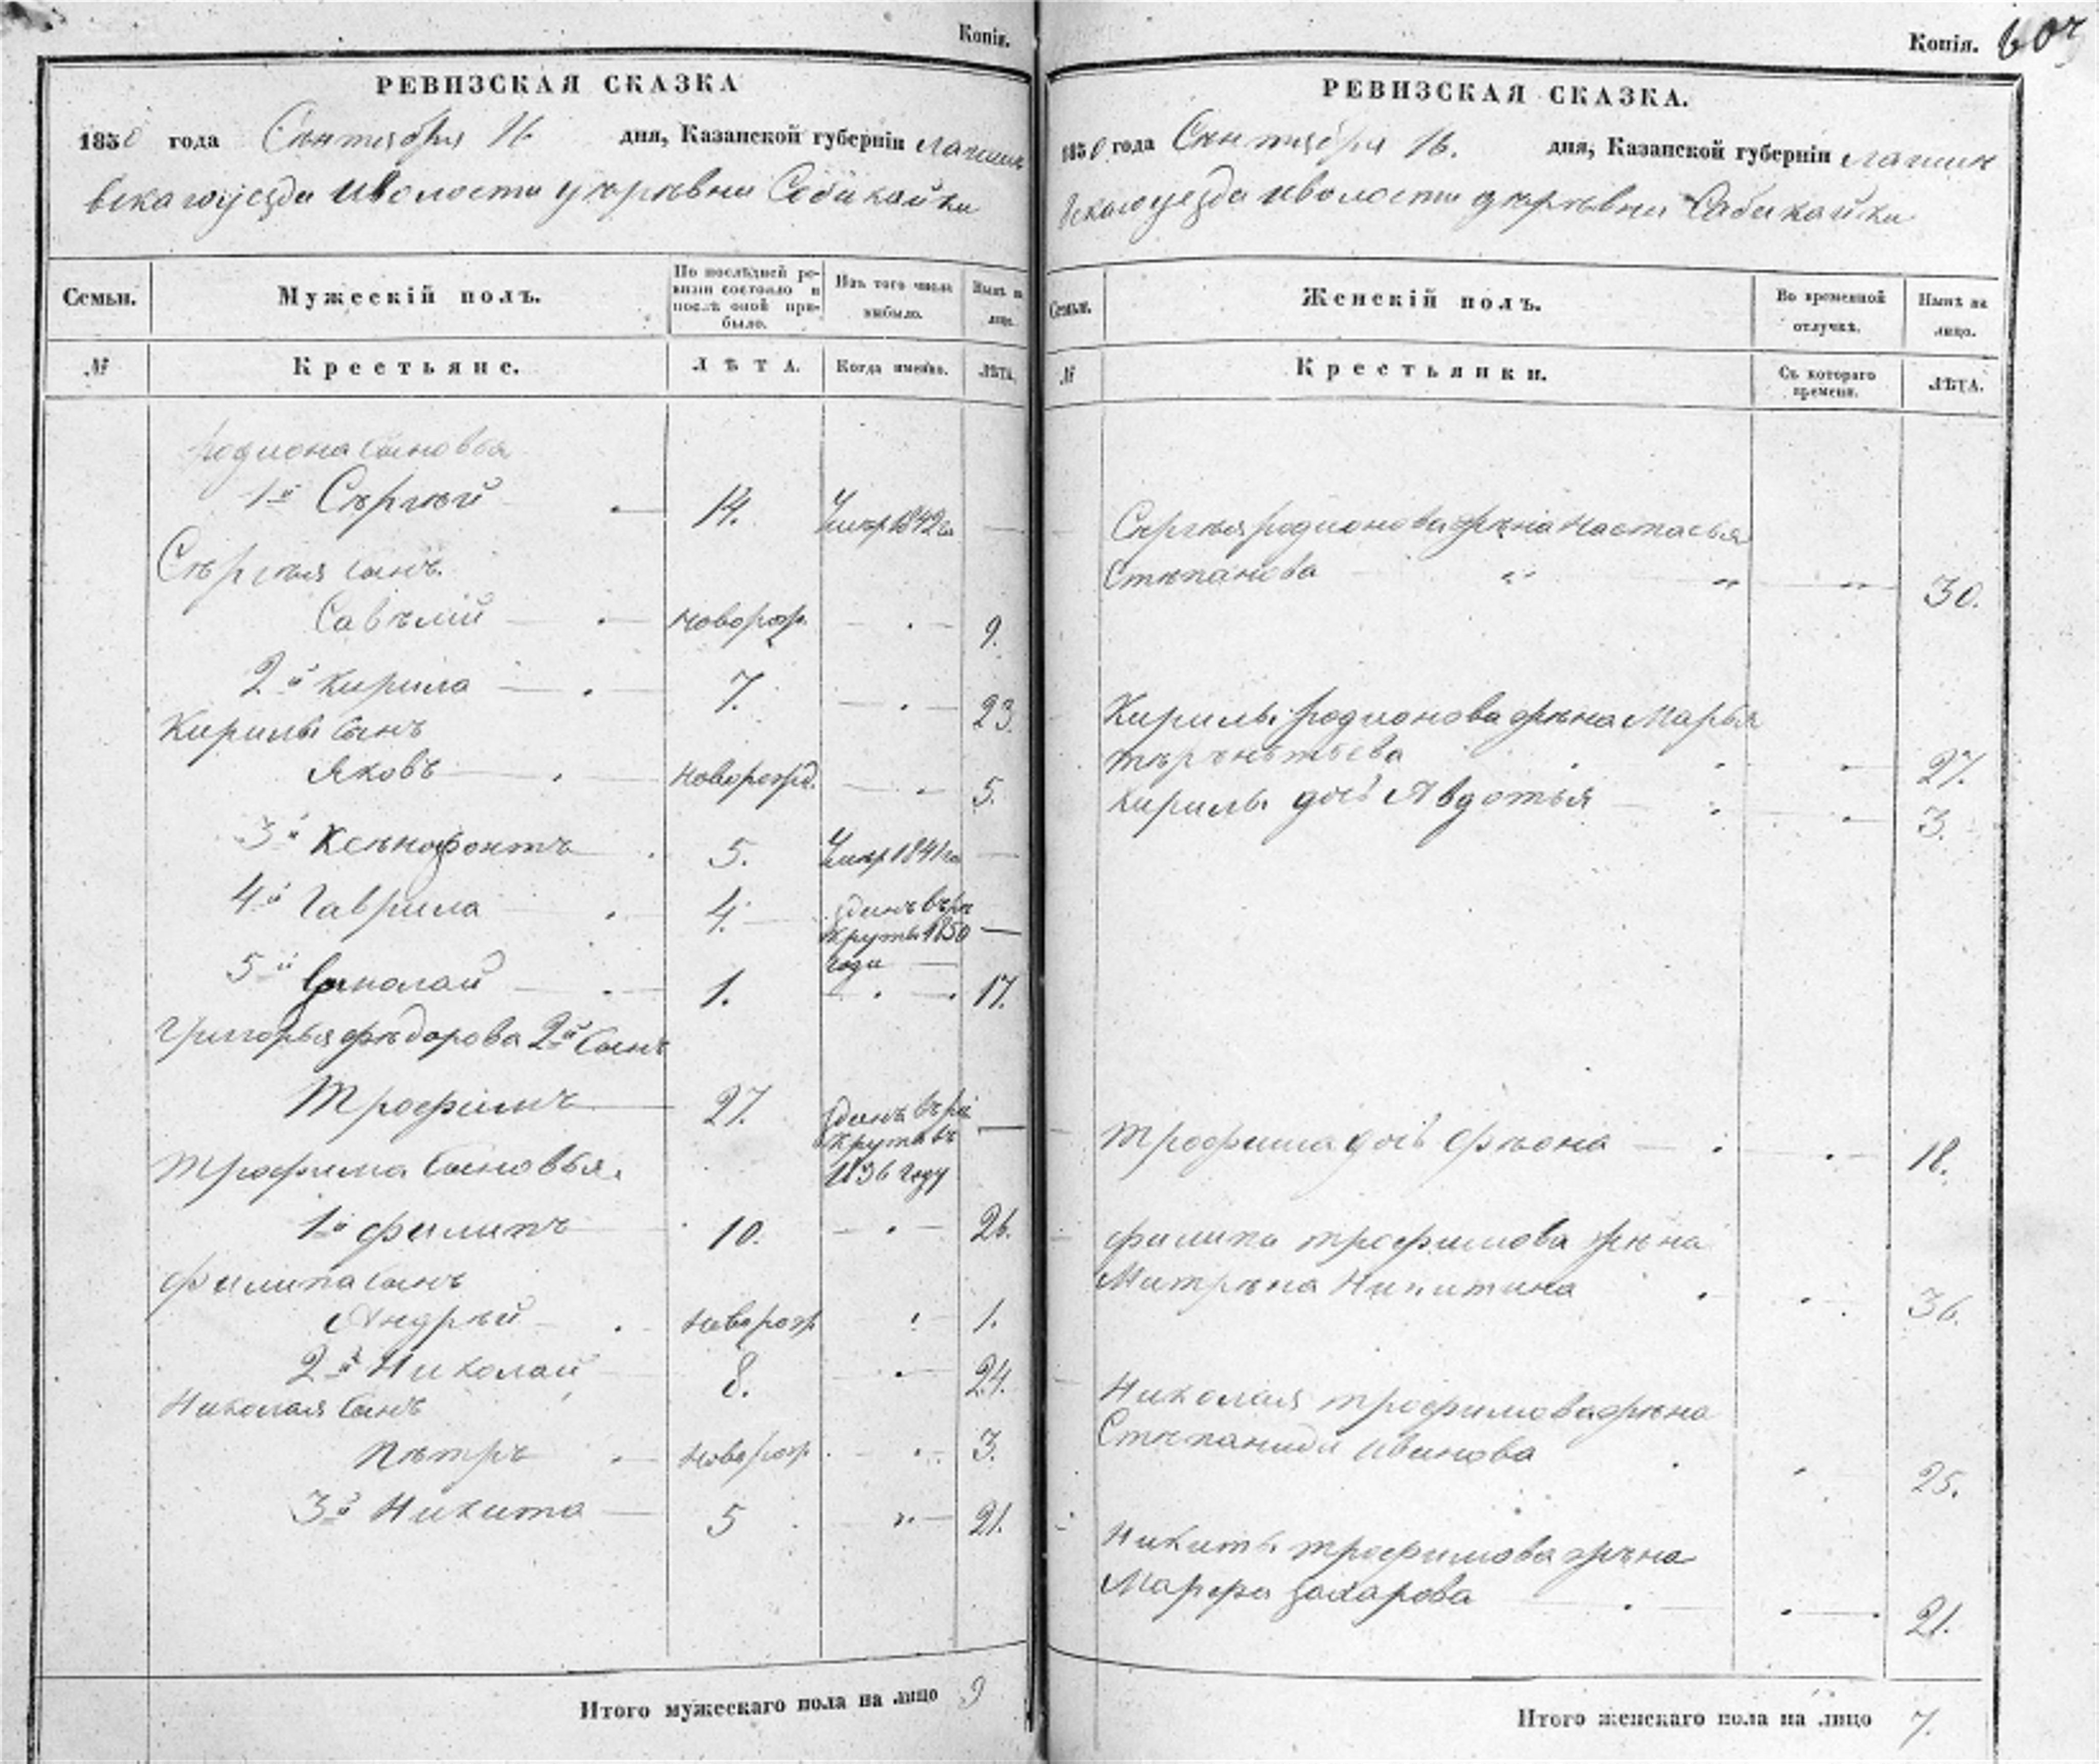 Копія.
РЕВИЗСКАЯ СКАЗКА
1850 года Сентября 16. дня, Казанской губерніи Лаишев
скаго уезда и волости деревни Сабакайки
Семьи.
Мужескій полъ.
По послѣдней ре-
визіи состояло и
послѣ оной при-
было.
Изъ того числа
выбыло.
Нынѣ на
лицо.
№
Крестьяне.
ЛѢТА.
Когда именно.
ЛѢТА.
Родиона сыновья
1й Сергей 14. Умер 1842 го
Сергея сынъ
Савелій новорож. 9.
2й Кирила 7. 23.
Кирилы сынъ
Яковъ новорожд. 5.
3й Ксенофонтъ 5. Умер 1841 го
4й Гаврила 4. здань в ре
круты 1850
года
5й Ермолай 1. 17.
Григорья Федорова 2й сынъ
Трофимъ 27. здань в ре
круты въ
1836 году
Трофима сыновья.
1й Филипъ 10. 26.
Филипа сынъ
Андрей новорож 1.
2й Николай 8. 24.
Николая сынъ
Петръ новорож. 3.
3й Никита 5 21.
Итого мужескаго пола на лицо 9
Копія. 607
РЕВИЗСКАЯ СКАЗКА.
1850 года Сентября 16. дня, Казанской губерніи Лаишев
скаго уезда и волости деревни Сабакайки
Семьи.
Женскій полъ.
Во временной
отлучкѣ.
Нынѣ на
лицо.
№
Крестьянки.
Съ котораго
времени.
ЛѢТА.
Сергея Родионова жена Настасья
Степанова 30.
Кирилы Родионова жена Марья
Терентьева 27.
Кирилы дочь Авдотья 3.
Трофима дочь Феона 18.
Филипа Трофимова жена
Матрена Никитина 36.
Николая Трофимова жена
Степанида Иванова 25.
Никиты Трофимова жена
Марфа Захарова 21.
Итого женскаго пола на лицо 7.